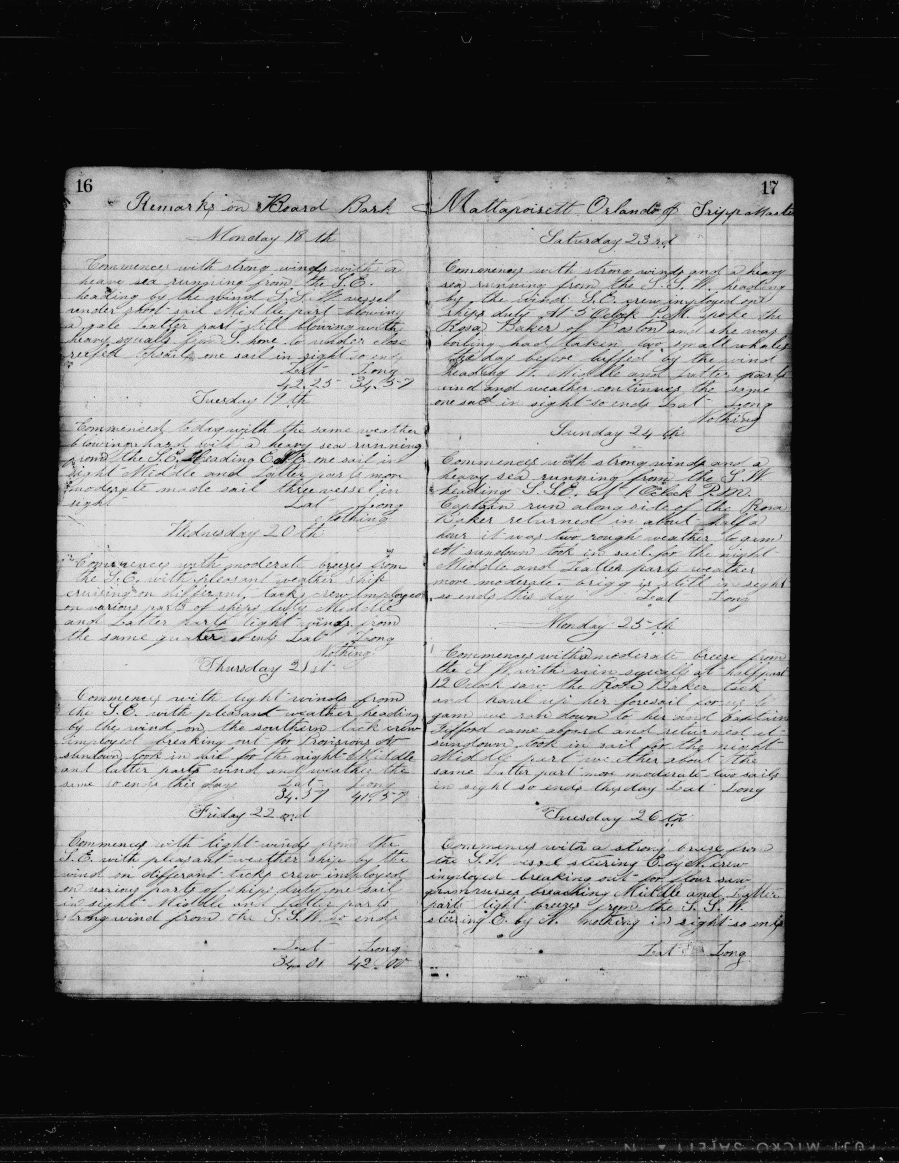 16
Remarks on Board Bark
Monday 18th
Commences with strong winds with a
heave sea running from the S.E.
heading by the wind S.S.W vessel
render short sail Middle part blowing
a gale Latter part still blowing with
heavy squals from hove to under close
reefed topsails one sail in sight so ends
Lat Long
42.25 34.57
Tuesday 19th
Commenced today with the same weather
blowing hard with a heavy sea running
from the S.E. Heading one sail in
sight Middle and Latter parts more
moderate made sail three vessel in
sight Lat Long
Nothing
Wednesday 20th
Commences with moderate breezes from
the S.E. with pleasent weather ship
cruising on different tacks crew employed
on various parts of ships duty Middle
and Latter parts light winds from
the same quater so ends Lat Long
Nothing
Thursday 21st
Commences with light winds from
the S.E. with pleasant weather heading
by the wind on the southern tack crew
imployed breaking out for Provisions At
sundown took in sail for the night Middle
and latter parts wind and weather the
same so ends this day Lat Long
34.57 41.57
Friday 22nd
Commences with light winds from the
S.E. with pleasant weather ship by the
wind on differant tacks crew imployed
on various parts of ships duty one sail
in sight Middle and Latter parts
strong wind from the S.S.W. so ends
Lat Long
34.01 42.00
17
Mattapoisett Orlando J Tripp Master
Saturday 23rd
Commences with strong winds and a heavy
sea running from the S.S.W. heading
by the wind S.E. crew imployed on
ships duty At 5 Oclock P.M. spoke the
Rosa Baker of Boston and she was
boiling had taken two small whales
the day before luffed by the wind
heading W. Middle and Latter parts
wind and weather continues the same
one sail in sight so ends Lat Long
Nothing
Sunday 24th
Commences with strong winds and a
heavy sea running from the S.W.
heading S.S.E. at 1 Oclock P.M.
Captain run along side of the Rosa
Baker returned in about half a
hour it was two rough weather to gam
At sundown took in sail for the night
Middle and Latter parts weather
more moderate. brigg is still in sight
so ends this day Lat Long
Monday 25th
Commences with a moderate breeze from
the S.W. with rain squalls at half past
12 Oclock saw the Rosa Baker tack
and haul up her foresail for us to
gam we ran down to her and Captain
Gifford came aboard and returned at
sundown took in sail for the night
Middle part weather about the
same Latter part more moderate two sails
in sight so ends thisday Lat Long
Tuesday 26th
Commences with a strong breese from
the S.W. vessel steering E. by N. crew
imployed breaking out for flour saw
grampuses breaching Middle and Latter
parts light breezes from the S.S.W.
steering E. by N. nothing in sight so ends
Lat Long